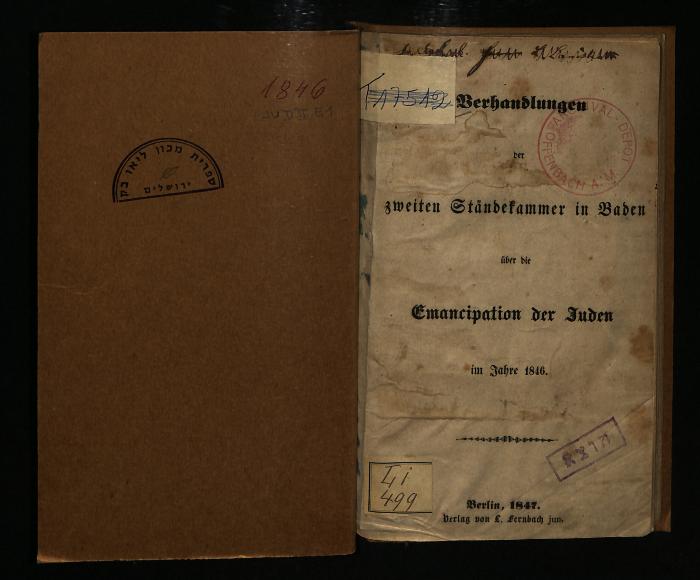 1846
ספרית מכון ליאו בק
ירושלים
T17512
Verhandlungen
ARCHIVAL-DEPOT
OFFENBACH A. M.
der
zweiten Ständekammer in Baden
über die
Emancipation der Juden
im Jahre 1846.
499
Berlin, 1847.
Verlag von L. Fernbach jun.